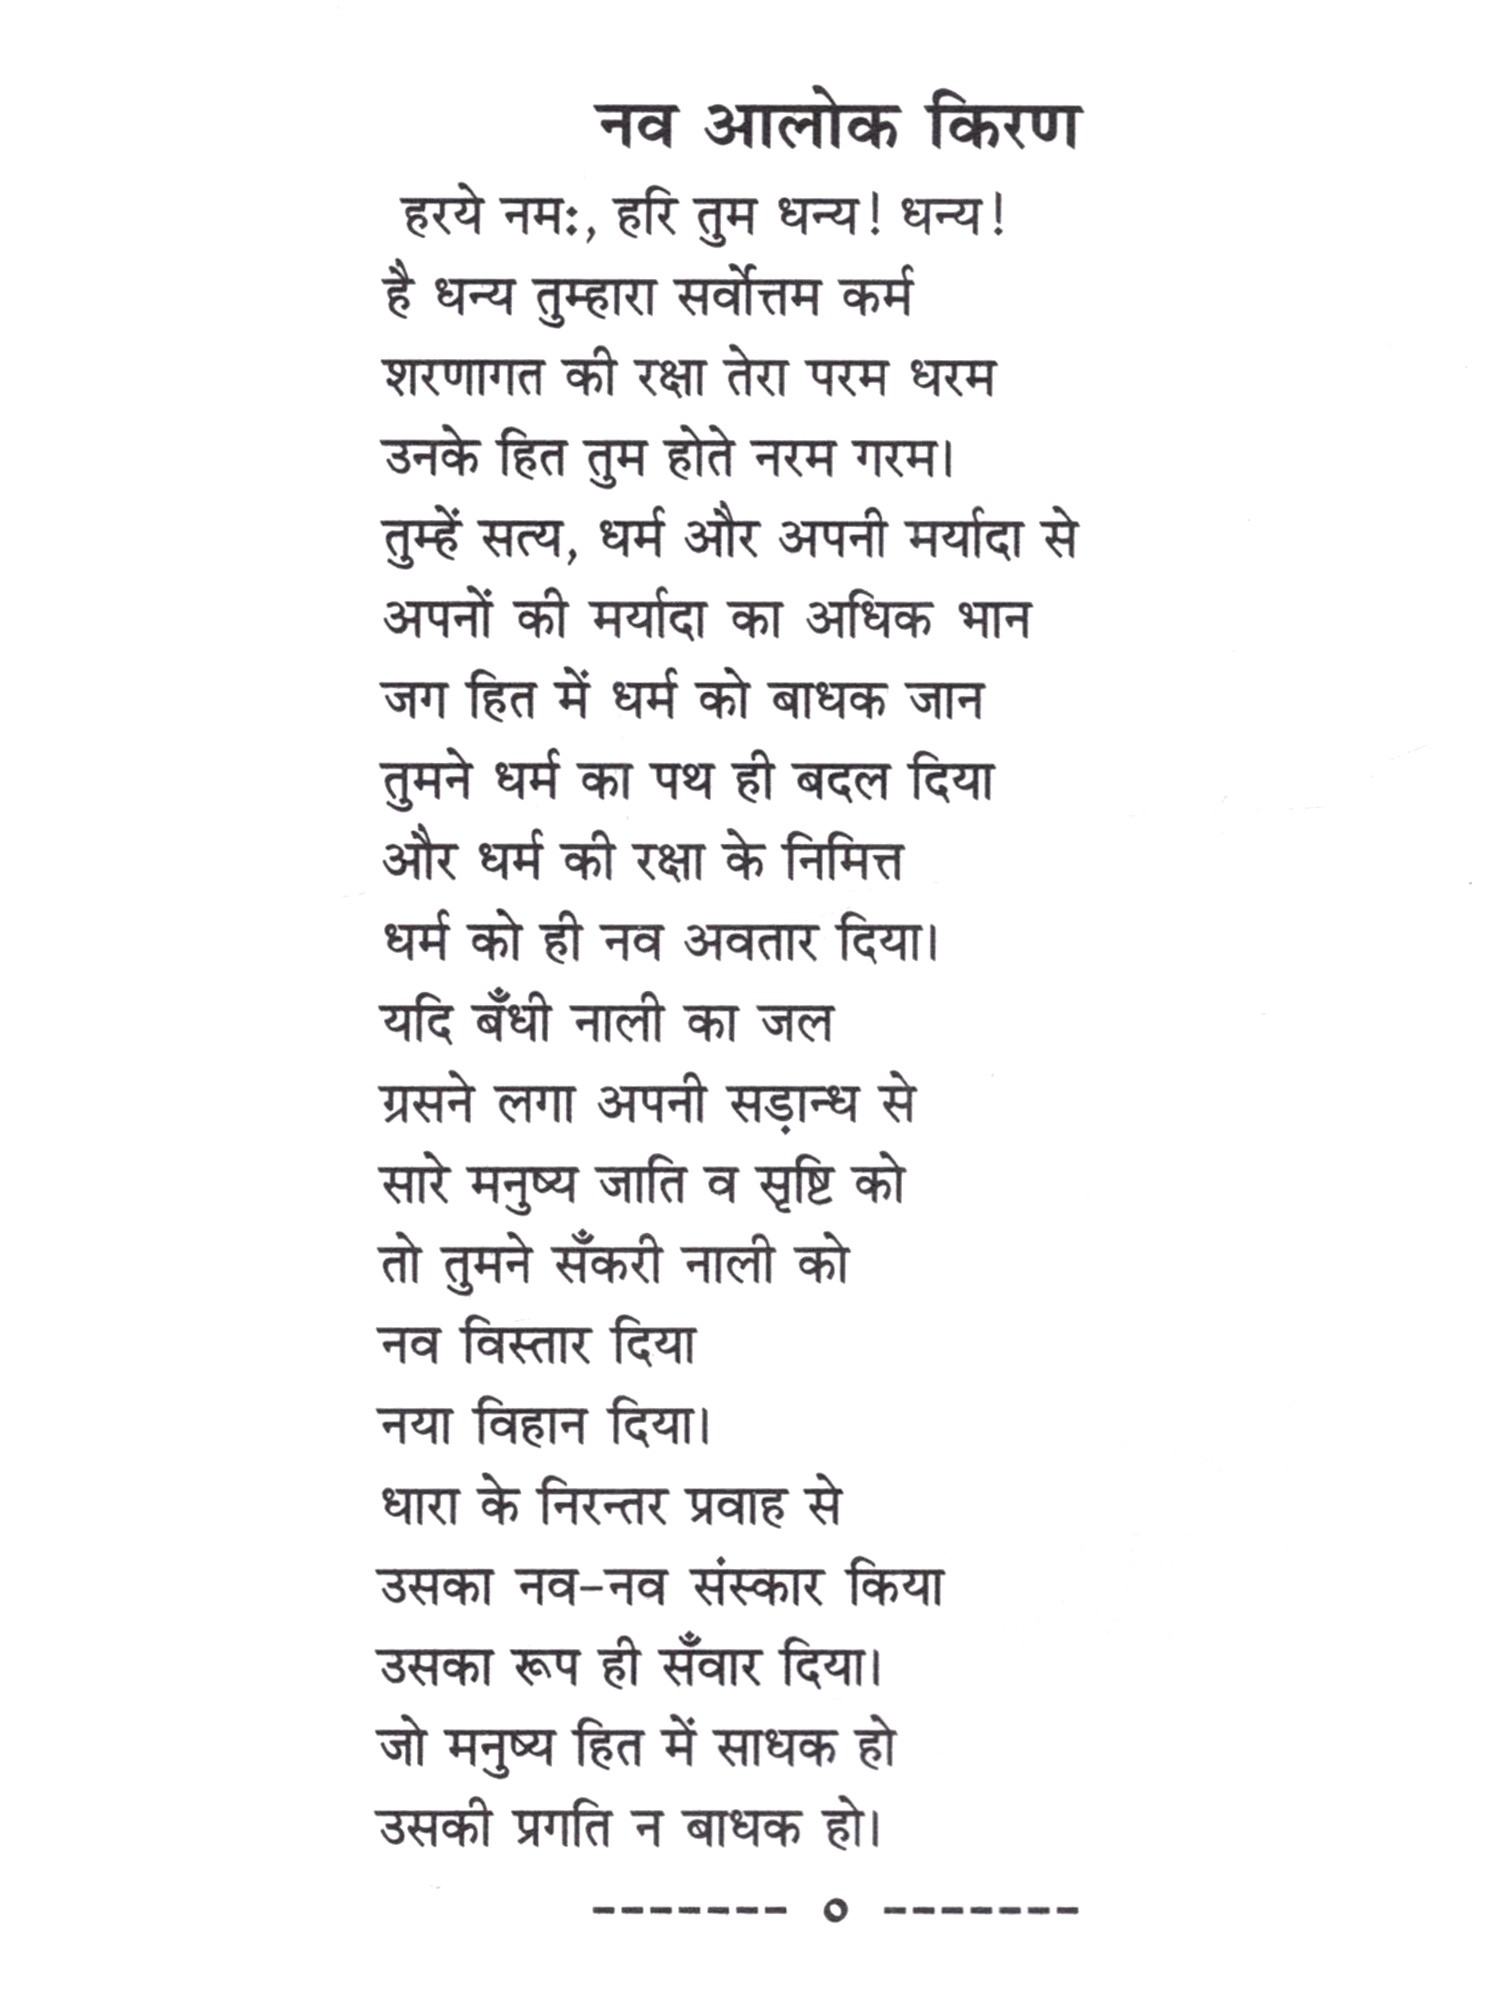 नव आलोक किरण
हरये नमः, हरि तुम धन्य! धन्य!
है धन्य तुम्हारा सर्वोत्तम कर्म
शरणागत की रक्षा तेरा परम धरम
उनके हित तुम होते नरम गरम।
तुम्हें सत्य, धर्म और अपनी मर्यादा से
अपनों की मर्यादा का अधिक भान
जग हित में धर्म को बाधक जान
तुमने धर्म का पथ ही बदल दिया
और धर्म की रक्षा के निमित्त
धर्म को ही नव अवतार दिया।
यदि बँधी नाली का जल
ग्रसने लगा अपनी सड़ान्ध से
सारे मनुष्य जाति व सृष्टि को
तो तुमने सँकरी नाली को
नव विस्तार दिया
नया विहान दिया।
धारा के निरन्तर प्रवाह से
उसका नव-नव संस्कार किया
उसका रूप ही सँवार दिया।
जो मनुष्य हित में साधक हो
उसकी प्रगति न बाधक हो।
------- o -------